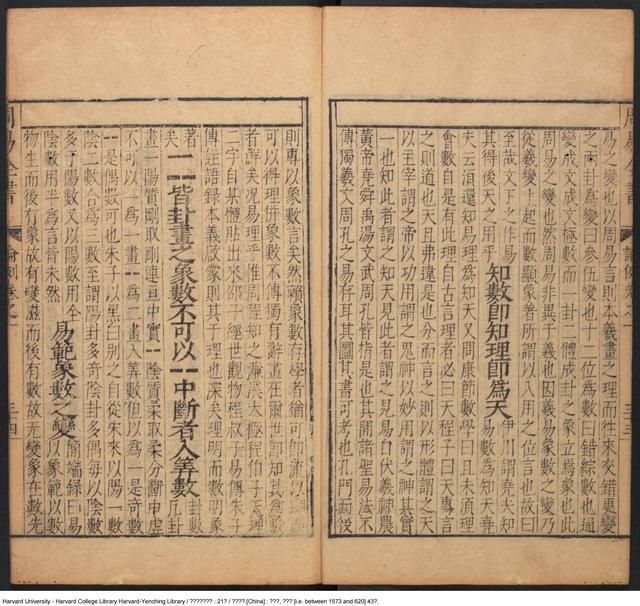 易之變也以周易言則本義畫之理而往來交錯更變
之兩卦為變曰參伍變也十二位為數曰錯綜數也通
變成文成文極數而一卦二體成卦之象立焉象也此
周易之變也然周易非異于義也因義易象數之變乃
從義變上起而數顯象著所謂以入用之位言也故曰
至哉文王之作易
其得後天之用乎
知數即知理即爲天
伊川謂堯夫知
易數為知天堯
夫云湏還知易理為知天又問康節數學曰且未湏理
會數自是有此理自古言理者必曰天程子曰天專言
之則道也天且弗違是也分而言之則以形體謂之天
以主宰謂之帝以功用謂之鬼神以妙用謂之神其實
一也知此者謂之知天見此者謂之見易自伏羲神農
黃帝堯舜禹湯文武周孔皆指是也其開諸聖易法不
傳獨羲文周孔之易存耳其圖其書可考也孔門前後
則專以象數言矣然賴象數存學者猶可即流以
可以得理併象數不傳獨有辭畫在爾世即知其為數
者辭矣况易理乎惟周程知之濂溪太極程伯子天理
二字自某體貼出來邵子經世觀物程叔子易傳朱子
傳註語錄本義啟蒙則其于理也深矣理明而數明象
著
矣
一--皆卦畫之象數不可以--中斷者入筭數
卦數
凡卦
畫一陽質剛取剛連亘中實--陰質柔取柔分斷中虛
不可以--為一畫--為二畫入筭數但以為一是奇數
--是偶數可也朱子以黑白别之自從宋來以陽一數
陰二數合為三數至謂陽卦多奇陰卦多偶每以陰數
多于陽數又以陽數用全
陰數用半為言皆未然
易範象數之變
簡端録曰易
以象範以數
物生而後有象故有變滋而後有數故无變象在數先
周易全書
論例卷之一
三十三
周易全書
論例卷之一
三十四
Harvard University - Harvard College Library Harvard-Yenching Library / ??????? : 21? / ????.[China] : ???, ??? [i.e. between 1573 and 620] 43?.